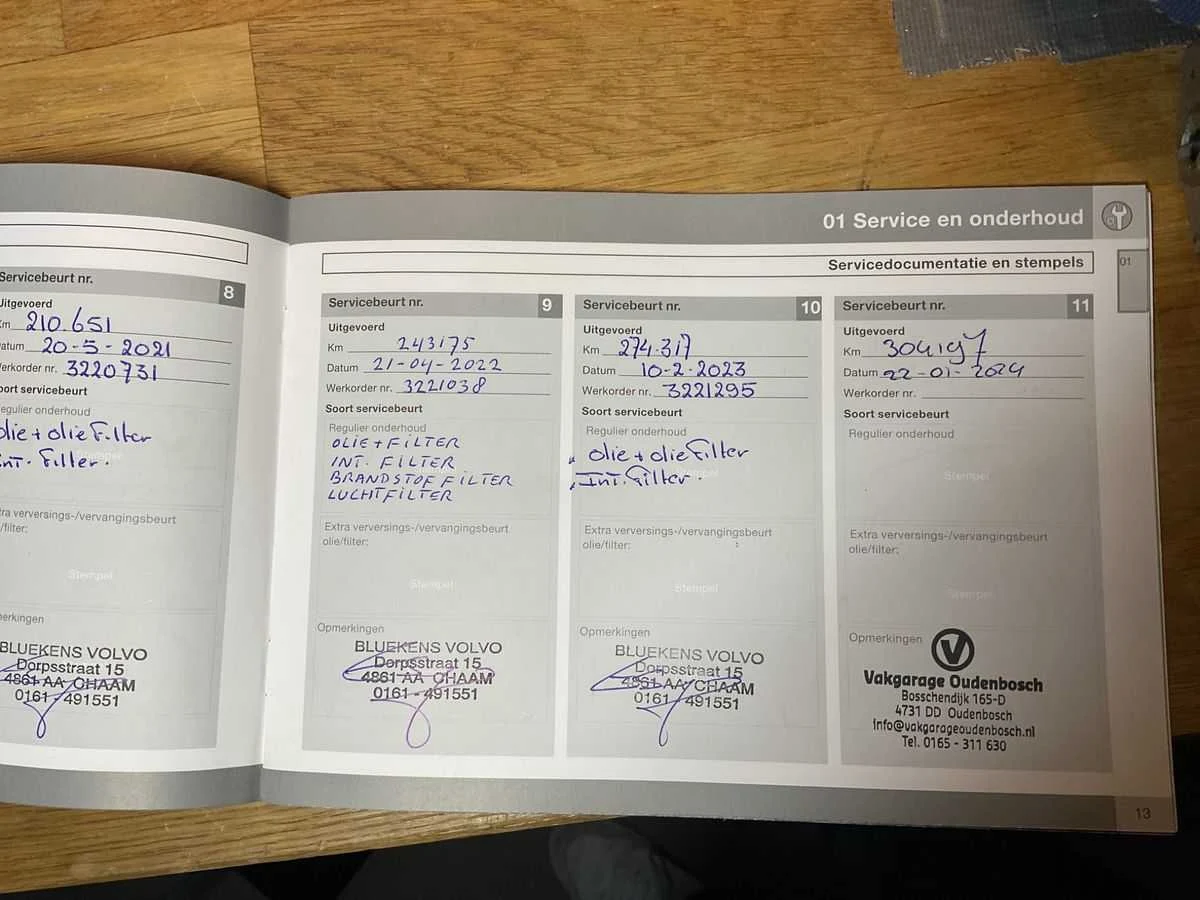 01 Service en onderhoud
01
Servicedocumentatie en stempels
Servicebeurt nr. 8
Uitgevoerd
Km 210.651
Datum 20-5-2021
Werkorder nr. 3220731
Soort servicebeurt
Regulier onderhoud
olie + olie Filter
int. Filter.
Stempel
Extra verversings-/vervangingsbeurt
olie/filter:
Stempel
Opmerkingen
BLUEKENS VOLVO
Dorpsstraat 15
4861 AA CHAAM
0161 - 491551
Servicebeurt nr. 9
Uitgevoerd
Km 243175
Datum 21-04-2022
Werkorder nr. 3221038
Soort servicebeurt
Regulier onderhoud
OLIE + FILTER
INT. FILTER
BRANDSTOF FILTER
LUCHTFILTER
Extra verversings-/vervangingsbeurt
olie/filter:
Stempel
Opmerkingen
BLUEKENS VOLVO
Dorpsstraat 15
4861 AA CHAAM
0161 - 491551
Servicebeurt nr. 10
Uitgevoerd
Km 274.317
Datum 10-2-2023
Werkorder nr. 3221295
Soort servicebeurt
Regulier onderhoud
olie + olie Filter
Int. Filter.
Stempel
Extra verversings-/vervangingsbeurt
olie/filter:
Stempel
Opmerkingen
BLUEKENS VOLVO
Dorpsstraat 15
4861 AA CHAAM
0161 - 491551
Servicebeurt nr. 11
Uitgevoerd
Km 304197
Datum 22-01-2024
Werkorder nr.
Soort servicebeurt
Regulier onderhoud
Stempel
Extra verversings-/vervangingsbeurt
olie/filter:
Stempel
Opmerkingen
V
Vakgarage Oudenbosch
Bosschendijk 165-D
4731 DD Oudenbosch
info@vakgarageoudenbosch.nl
Tel. 0165 - 311 630
13